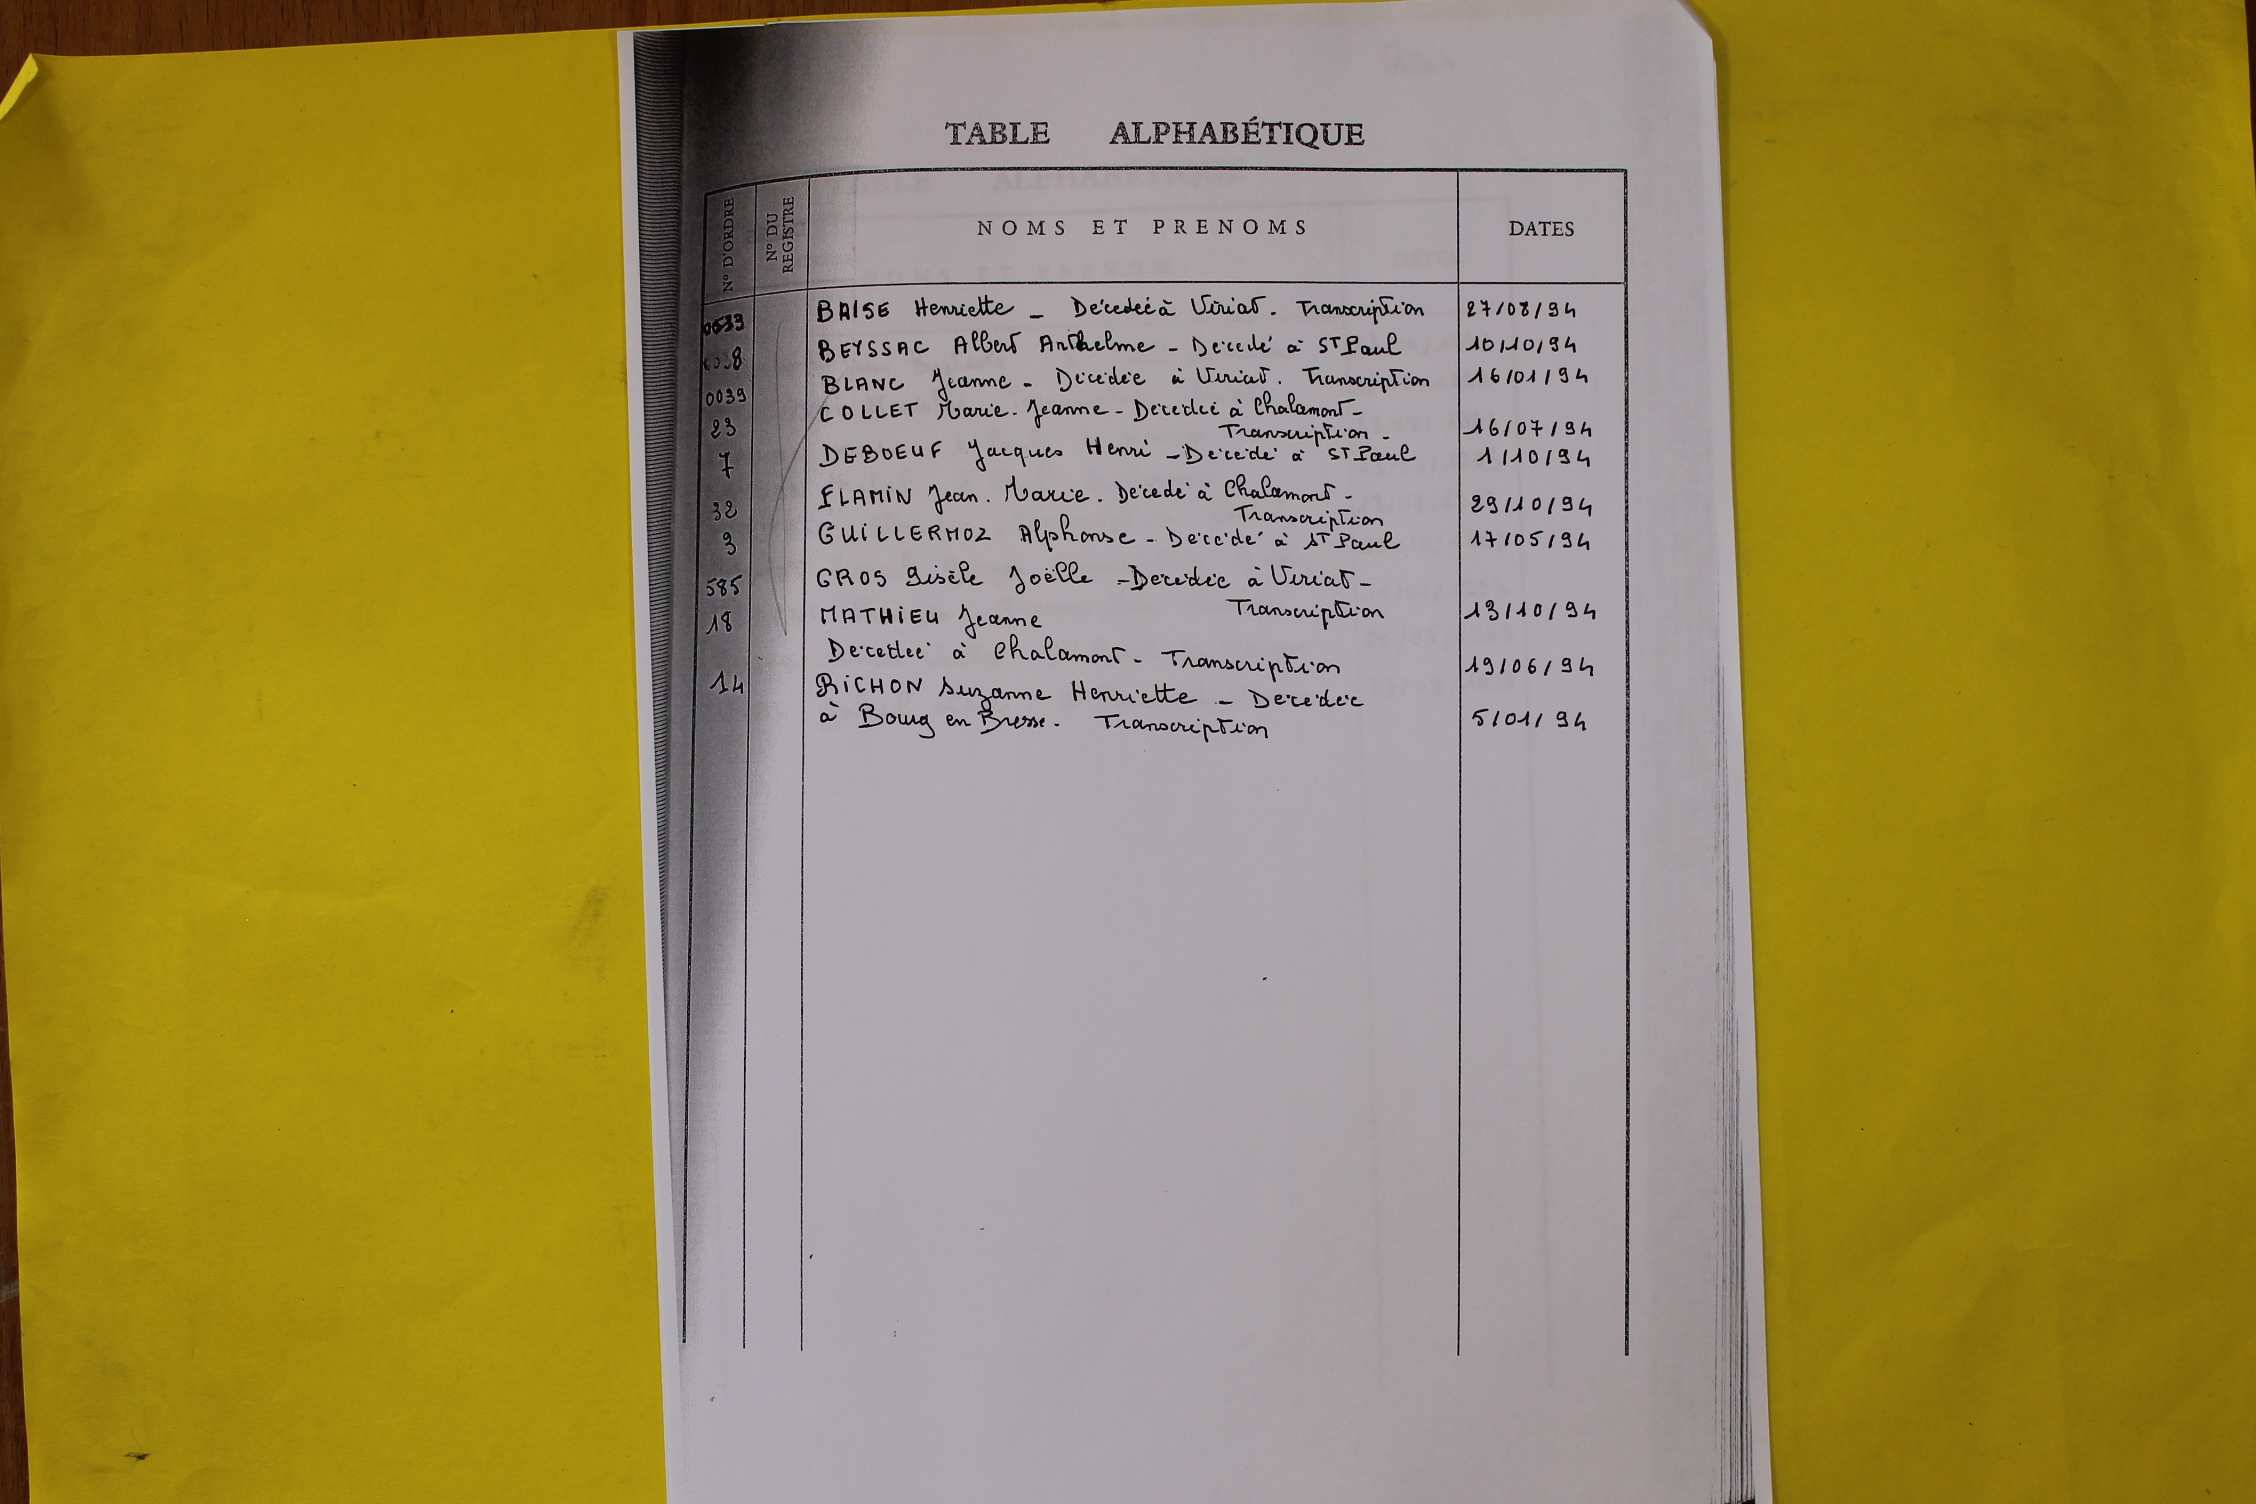 TABLE ALPHABÉTIQUE
N° D'ORDRE N° DU REGISTRE NOMS ET PRENOMS DATES
BAISE Henriette - Décédéé à Viriat. Transcription 27/08/94
BEYSSAC Albert Anthelme - Décédé à ST Paul 10/10/94
0039 BLANC Jeanne - Décédée à Viriat. Transcription 16/01/94
23 COLLET Marie-Jeanne - Décédéé à Chalamont-
Transcription - 16/07/94
7 DEBOEUF Jacques Henri - Décédé à ST Paul 1/10/94
32 FLAMIN Jean-Marie. Décédé à Chalamont-
Transcription 29/10/94
3 GUILLERMOZ Alphonse - Décédé à ST Paul 17/05/94
585 GROS Gisèle Joëlle - Décédée à Viriat-
Transcription 13/10/94
18 MATHIEU Jeanne
Décédéé à Chalamont- Transcription 19/06/94
14 RICHON Suzanne Henriette - Décédée
à Bourg en Bresse. Transcription 5/01/94